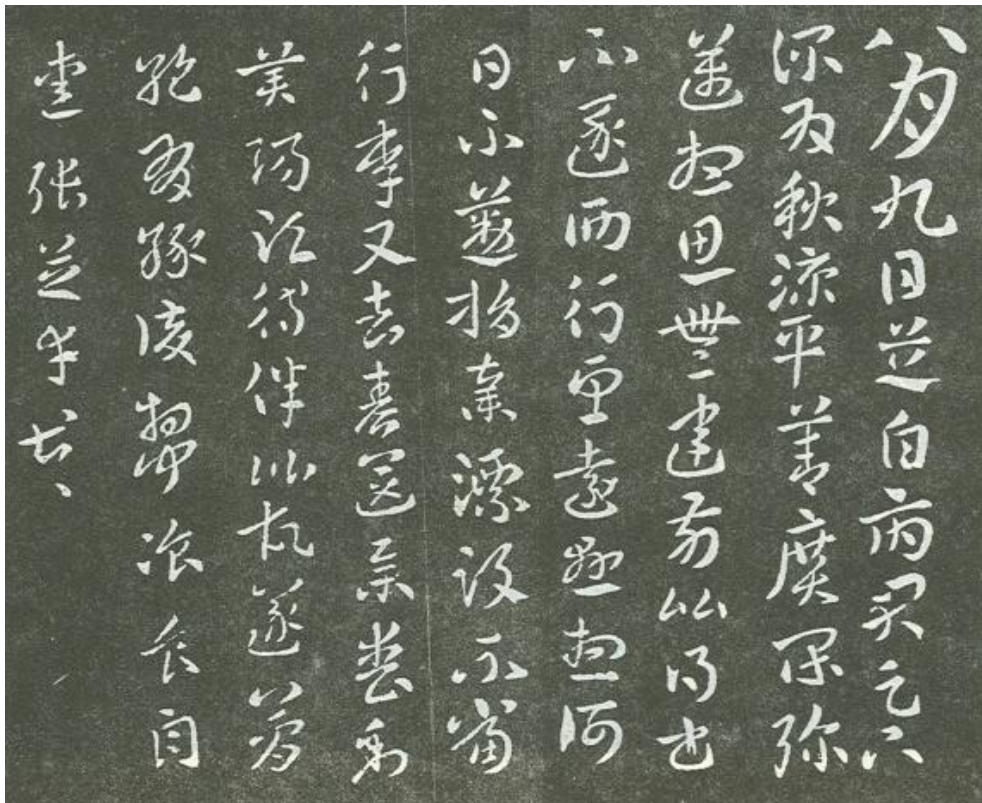 八月九日芝白府君足下
深為秋涼平善廣閑彌
邁想思無違前比得書
不遂西行望遠懸想何
日不懃捐棄漂沒不當
行李又去春送舉喪到
美陽須待伴比故遂簡
絕有緣復相聞飡食自
愛張芝幸甚幸甚